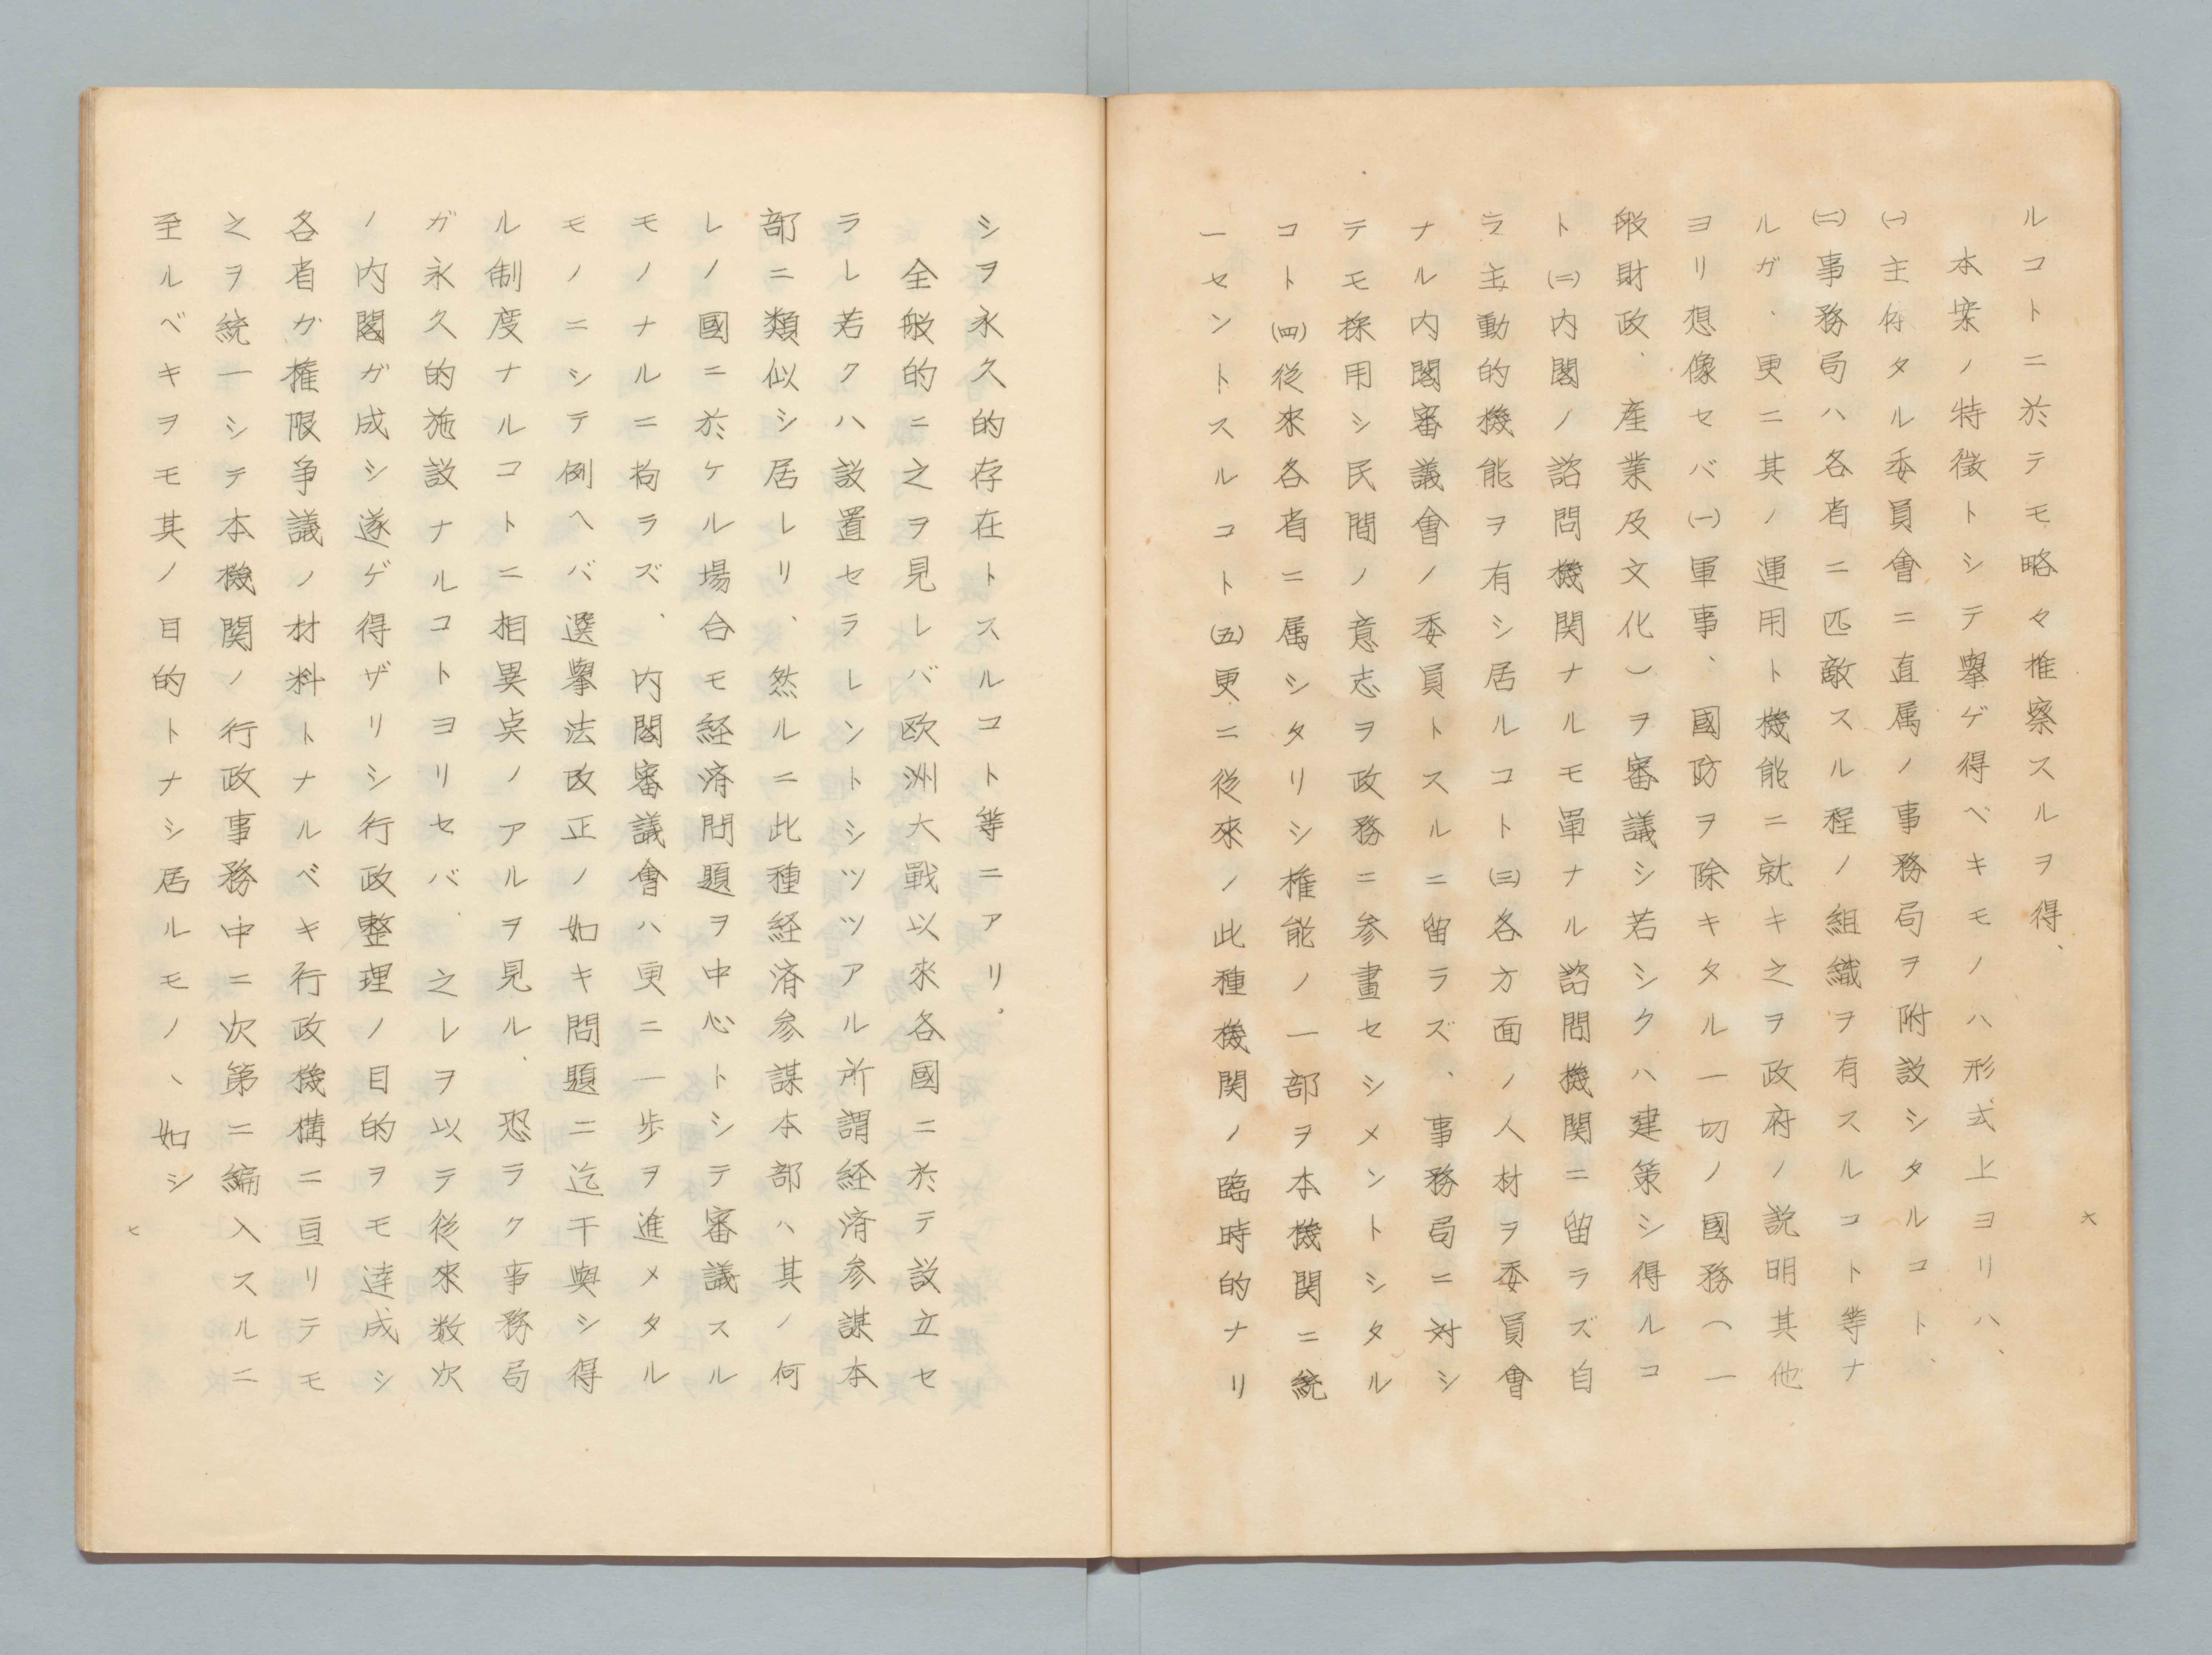 ルコトニ於テモ略々推察スルヲ得、
本案ノ特徴トシテ擧ゲ得ベキモノハ形式上ヨリハ、
㈠主体タル委員會ニ直属ノ事務局ヲ附設シタルコト、
㈡事務局ハ各省ニ匹敵スル程ノ組織ヲ有スルコト等ナ
ルガ、更ニ其ノ運用ト機能ニ就キ之ヲ政府ノ説明其他
ヨリ想像セバ㈠軍事、國防ヲ除キタル一切ノ國務（一
般財政、産業及文化）ヲ審議シ若シクハ建策シ得ルコ
ト㈡内閣ノ諮問機関ナルモ單ナル諮問機関ニ留ラズ自
ラ主動的機能ヲ有シ居ルコト㈢各方面ノ人材ヲ委員會
ナル内閣審議會ノ委員トスルニ留ラズ、事務局ニ対シ
テモ採用シ民間ノ意志ヲ政務ニ参畫セシメントシタル
コト㈣従來各省ニ属シタリシ権能ノ一部ヲ本機関ニ統
一セントスルコト㈤更ニ従來ノ此種機関ノ臨時的ナリ
六
シヲ永久的存在トスルコト等ニアリ。
全般的ニ之ヲ見レバ欧洲大戰以來各國ニ於テ設立セ
ラレ若クハ設置セラレントシツツアル所謂経済参謀本
部ニ類似シ居レリ、然ルニ此種経済参謀本部ハ其ノ何
レノ國ニ於ケル場合モ経済問題ヲ中心トシテ審議スル
モノナルニ拘ラズ、内閣審議會ハ更ニ一歩ヲ進メタル
モノニシテ例ヘバ選擧法改正ノ如キ問題ニ迄干與シ得
ル制度ナルコトニ相異点ノアルヲ見ル、恐ラク事務局
ガ永久的施設ナルコトヨリセバ、之レヲ以テ従來数次
ノ内閣ガ成シ遂ゲ得ザリシ行政整理ノ目的ヲモ達成シ
各省ガ権限争議ノ材料トナルベキ行政機構ニ亘リテモ
之ヲ統一シテ本機関ノ行政事務中ニ次第ニ編入スルニ
至ルベキヲモ其ノ目的トナシ居ルモノヽ如シ
七